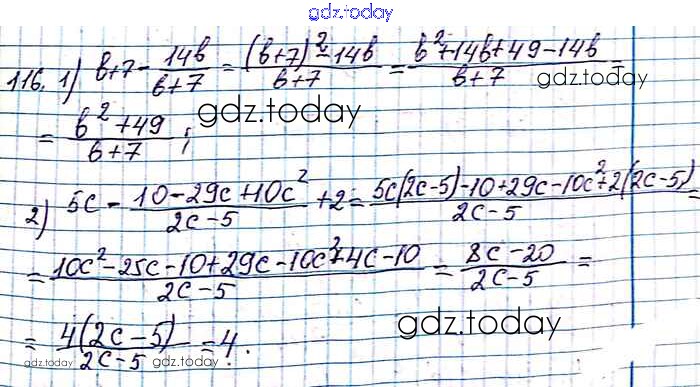 gdz.today
116. 1) b+7 - 14b/(b+7) = ((b+7)²-14b)/(b+7) = (b²+14b+49-14b)/(b+7) =
gdz.today
= (b²+49)/(b+7);
gdz.today
2) 5c - (10-29c+10c²)/(2c-5) + 2 = (5c(2c-5)-10+29c-10c²+2(2c-5))/(2c-5) =
= (10c²-25c-10+29c-10c²+4c-10)/(2c-5) = (8c-20)/(2c-5) =
= 4(2c-5)/(2c-5) = 4.
gdz.today
gdz.today
gdz.today